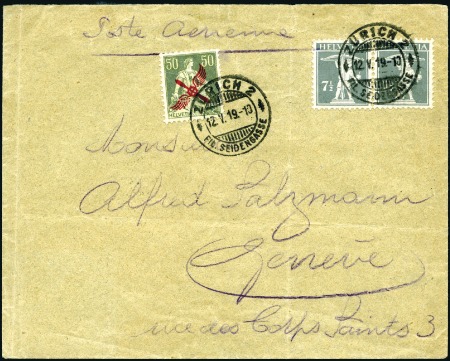 Poste Aerienne
50 50
HELVETIA
ZÜRICH 2
12.V.19.-10
FIL. SEIDENGASSE
7½
HELVETIA
ZÜRICH 2
12.V.19.-10
FIL. SEIDENGASSE
Monsieur
Alfred Salzmann
Genève
rue des Corps Saints 3